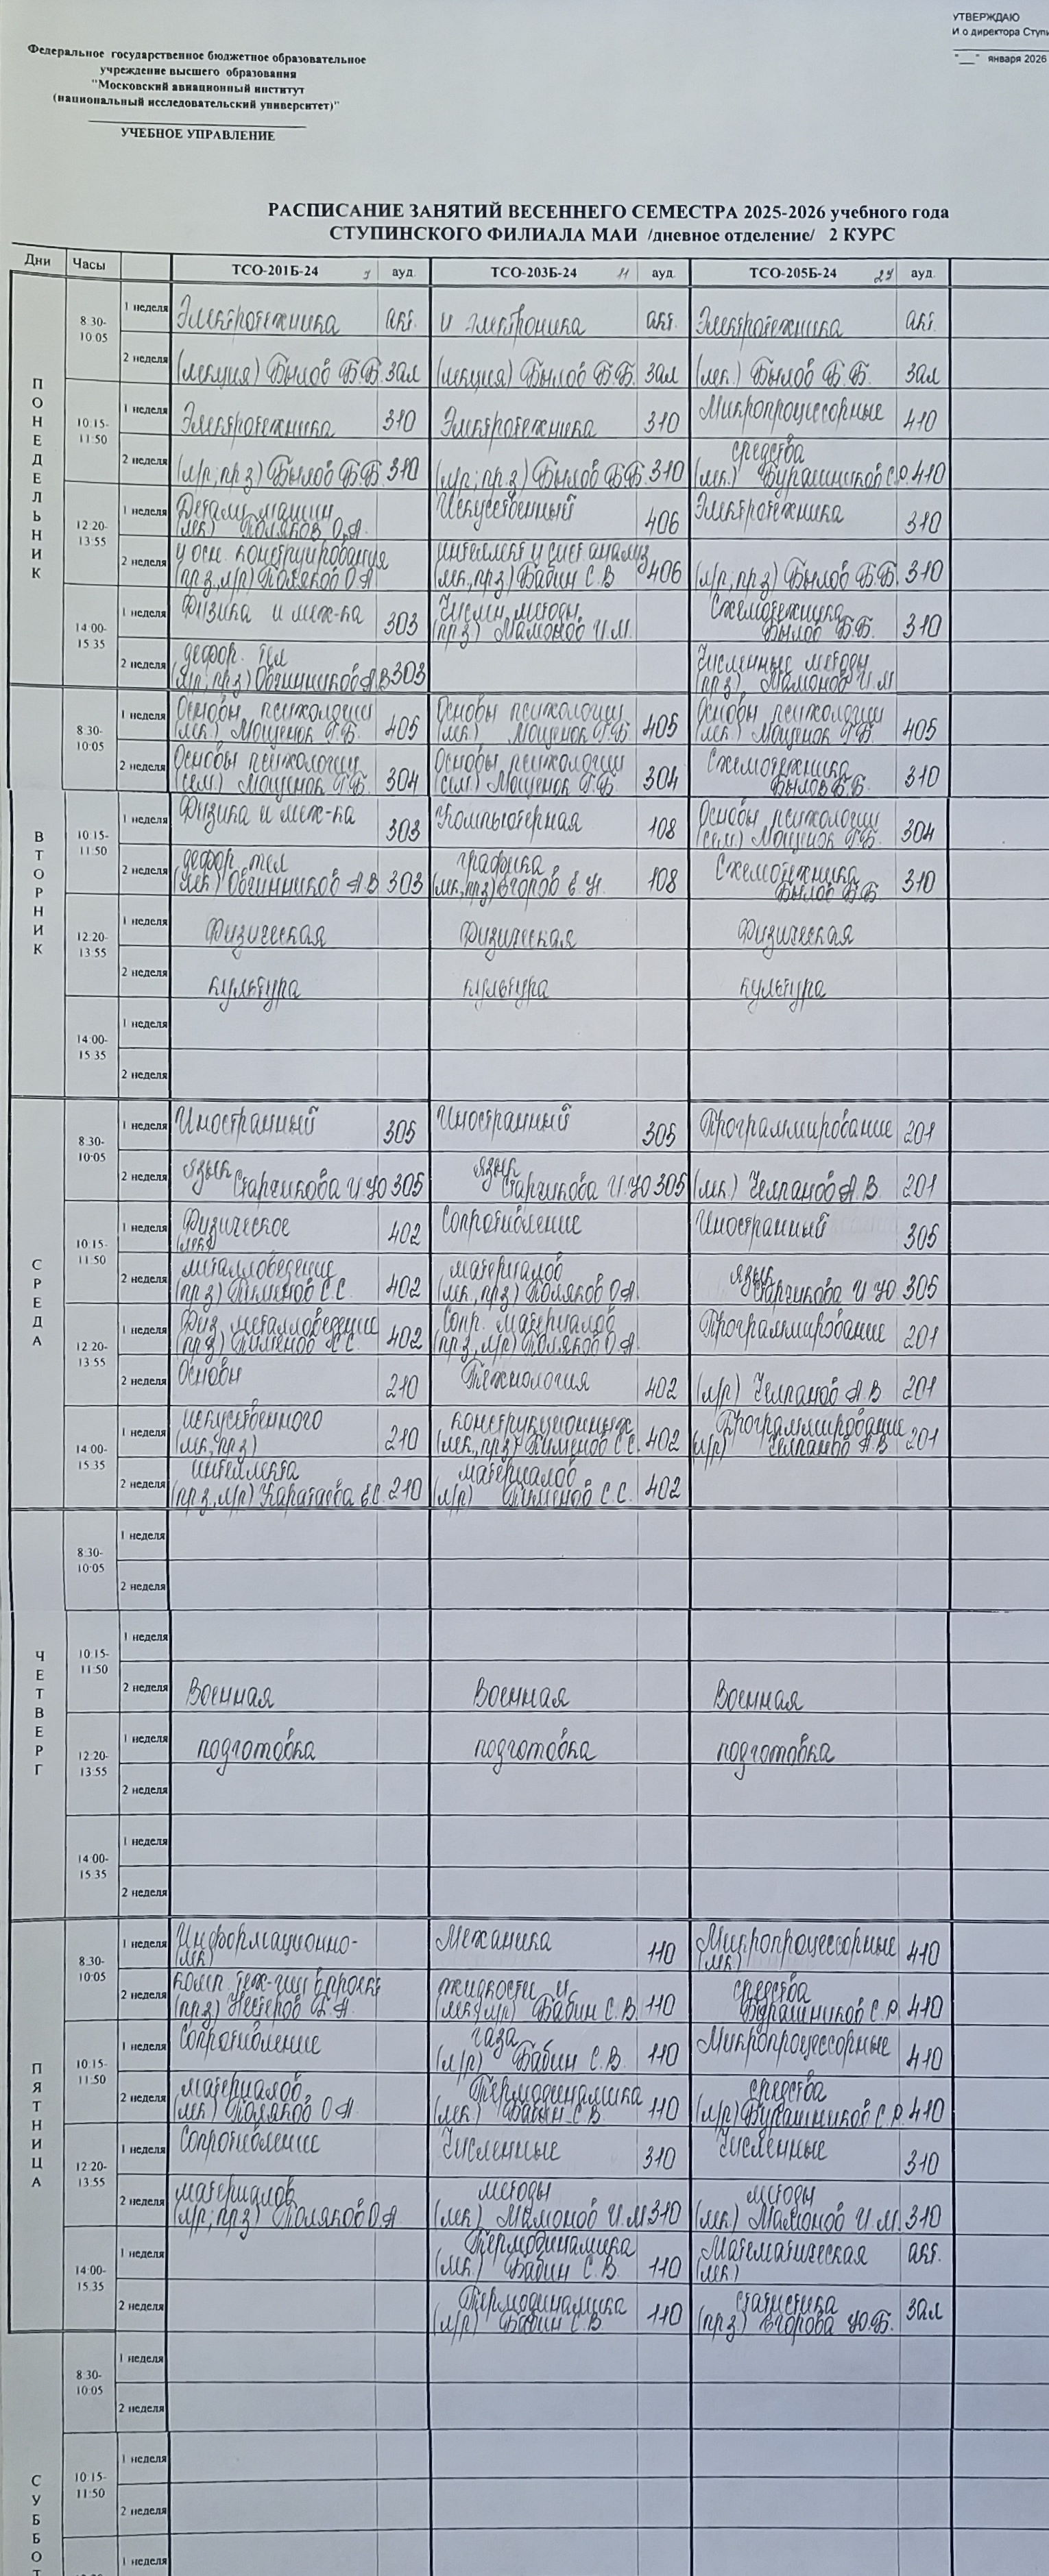 УТВЕРЖДАЮ
И о директора Ступи
"__" января 2026
Федеральное государственное бюджетное образовательное
учреждение высшего образования
"Московский авиационный институт
(национальный исследовательский университет)"
УЧЕБНОЕ УПРАВЛЕНИЕ
РАСПИСАНИЕ ЗАНЯТИЙ ВЕСЕННЕГО СЕМЕСТРА 2025-2026 учебного года
СТУПИНСКОГО ФИЛИАЛА МАИ /дневное отделение/ 2 КУРС
Дни Часы ТСО-201Б-24 9 ауд. ТСО-203Б-24 11 ауд. ТСО-205Б-24 24 ауд.
ПОНЕДЕЛЬНИК
8 30-10 05
1 неделя Электротехника акт. и электроника акт. Электротехника акт.
2 неделя (лекция) Былов Б.Б. зал (лекция) Былов Б.Б. зал (лек.) Былов Б.Б. зал
10 15-11 50
1 неделя Электротехника 310 Электротехника 310 Микропроцессорные 410
2 неделя (л/р; пр.з) Былов Б.Б. 310 (л/р; пр.з) Былов Б.Б. 310 средства (лек.) Бурашников С.Р. 410
12 20-13 55
1 неделя Детали машин (лек) Поляков О.А. Искусственный 406 Электротехника 310
2 неделя и осн. конструирования (пр.з, л/р) Поляков О.А интеллект и сист. анализ (лк, прз) Бабин С.В 406 (л/р, пр.з) Былов Б.Б. 310
14 00-15 35
1 неделя Физика и мех-ка 303 Числен. методы (пр.з) Мамонов И.М. Схемотехника Былов Б.Б. 310
2 неделя дефор. тел (л/р; пр.з) Овчинников А.В 303 Численные методы (пр.з) Мамонов И.М
ВТОРНИК
8 30-10 05
1 неделя Основы психологии (лек.) Мощенок Г.Б. 405 Основы психологии (лек) Мощенок Г.Б. 405 Основы психологии (лек.) Мощенок Г.Б. 405
2 неделя Основы психологии (сем.) Мощенок Г.Б. 304 Основы психологии (сем.) Мощенок Г.Б. 304 Схемотехника Былов Б.Б. 310
10 15-11 50
1 неделя Физика и мех-ка 303 Компьютерная 108 Основы психологии (сем.) Мощенок Г.Б. 304
2 неделя дефор. тел (лек.) Овчинников А.В 303 графика (лк, прз) Егоров Е.Н. 108 Схемотехника Былов Б.Б 310
12 20-13 55
1 неделя Физическая Физическая Физическая
2 неделя культура культура культура
14 00-15 35
1 неделя
2 неделя
СРЕДА
8 30-10 05
1 неделя Иностранный 305 Иностранный 305 Программирование 201
2 неделя язык Старчикова И.Ю 305 язык Старчикова И.Ю 305 (лк.) Челпанов А.В 201
10 15-11 50
1 неделя Физическое (лек) 402 Сопротивление Иностранный 305
2 неделя металловедение (пр.з) Пименов С.С. 402 материалов (лк, пр.з) Поляков О.А. язык Старчикова И.Ю. 305
12 20-13 55
1 неделя Физ. металловедение (пр.з) Пименов С.С. 402 Сопр. материалов (пр.з, л/р) Поляков О.А. Программирование 201
2 неделя Основы 210 Технология 402 (л/р) Челпанов А.В 201
14 00-15 35
1 неделя искуственного (лк, пр.з) 210 конструкционных (лек., пр.з) Пименов С.С. 402 Программирование (л/р) Челпанов А.В 201
2 неделя интеллекта (пр.з, л/р) Каратаева Е.С. 210 материалов (л/р) Пименов С.С. 402
ЧЕТВЕРГ
8 30-10 05
1 неделя
2 неделя
10 15-11 50
1 неделя
2 неделя Военная Военная Военная
12 20-13 55
1 неделя подготовка подготовка подготовка
2 неделя
14 00-15 35
1 неделя
2 неделя
ПЯТНИЦА
8 30-10 05
1 неделя Информационно- (лк) Механика 110 Микропроцессорные (лк.) 410
2 неделя комп. тех-гии в проект (пр.з) Нестеров жидкости и (лек, л/р) Бабин С.В. 110 средства Бурашников С.Р. 410
10 15-11 50
1 неделя Сопротивление газа (л/р) Бабин С.В. 110 Микропроцессорные 410
2 неделя материалов (лек.) Поляков О.А. Термодинамика (лек.) Бабин С.В. 110 средства (л/р) Бурашников С.Р. 410
12 20-13 55
1 неделя Сопротивление Численные 310 Численные 310
2 неделя материалов (л/р; пр.з) Поляков О.А методы (лек) Мамонов И.М 310 методы (лек.) Мамонов И.М. 310
14 00-15 35
1 неделя Термодинамика (лк.) Бабин С.В. 110 Математическая (лк.) акт.
2 неделя Термодинамика (л/р) Бабин С.В. 110 статистика (пр.з) Егорова Ю.Б. зал
СУББОТ
8 30-10 05
1 неделя
2 неделя
10 15-11 50
1 неделя
2 неделя
1 неделя